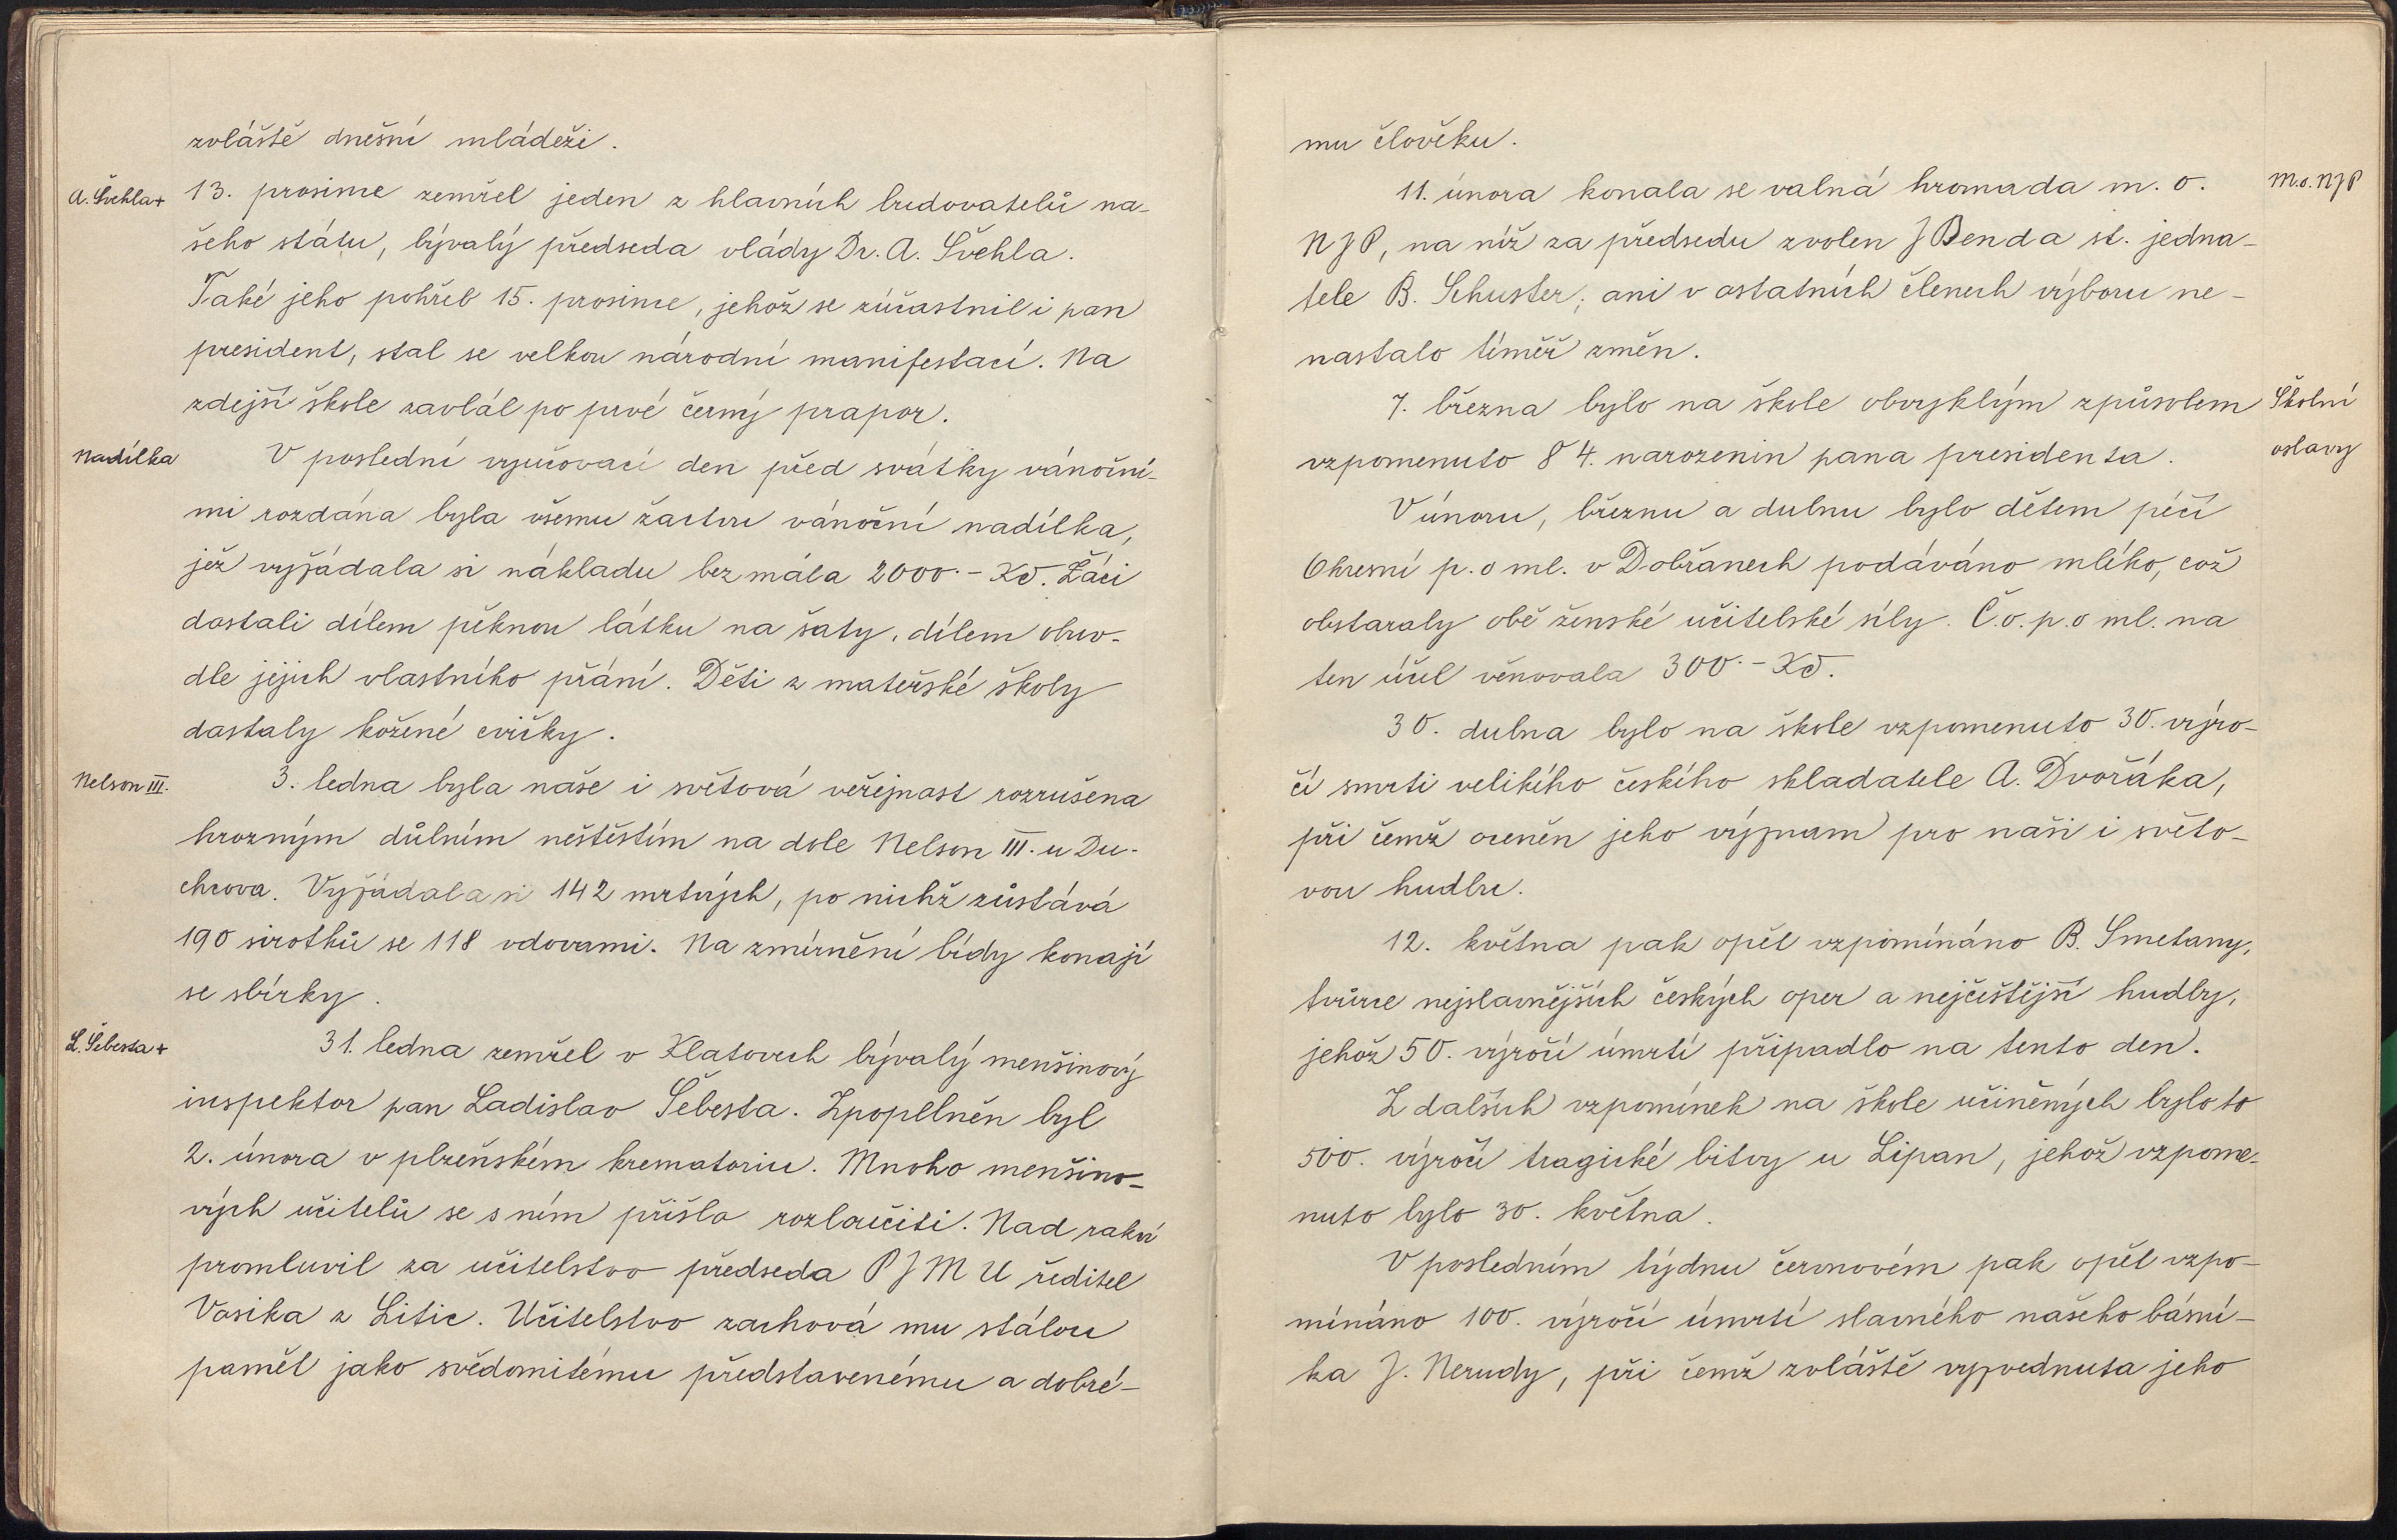 zvláště dnešní mládeži.
A. Švehla+
13. prosince zemřel jeden z hlavních budovatelů na-
šeho státu, bývalý předseda vlády Dr. A. Švehla.
Také jeho pohřeb 15. prosince, jehož se zúčastnil i pan
president, stal se velkou národní manifestací. Na
zdejší škole zavlál po prvé černý prapor.
Nadílka
V poslední vyučovací den před svátky vánoční-
mi rozdána byla všemu žactvu vánoční nadílka,
jež vyžádala si nákladu bezmála 2000.- Kč. Žáci
dostali dílem pěknou látku na šaty, dílem obuv-
dle jejich vlastního přání. Děti z mateřské školy
dostaly kožené cvičky.
Nelson III.
3. ledna byla naše i světová veřejnost rozrušena
hrozným důlním neštěstím na dole Nelson III. u Du-
chcova. Vyžádala si 142 mrtvých, po nichž zůstává
190 sirotků se 118 vdovami. Na zmírnění bídy konají
se sbírky.
L. Šebesta+
31. ledna zemřel v Klatovech bývalý menšinový
inspektor pan Ladislav Šebesta. Zpopelněn byl
2. února v plzeňském krematoriu. Mnoho menšino-
vých učitelů se s ním přišlo rozloučiti. Nad rakví
promluvil za učitelstvo předseda P J M U ředitel
Vosika z Litic. Učitelstvo zachová mu stálou
paměť jako svědomitému představenému a dobré-
mu člověku.
11. února konala se valná hromada m. o.
M.o. NJP
NJP, na níž za předsedu zvolen J Benda st. jedna-
tele B. Schuster, ani v ostatních členech výboru ne-
nastalo téměř změn.
7. března bylo na škole obvyklým způsobem
Školní
vzpomenuto 84. narozenin pana presidenta.
oslavy
V únoru, březnu a dubnu bylo dětem péčí
Okresní p. o ml. v Dobřanech podáváno mléko, což
obstaraly obě ženské učitelské síly. Č.o.p.o ml. na
ten účel věnovala 300.- Kč.
30. dubna bylo na škole vzpomenuto 30. výro-
čí smrti velikého českého skladatele A. Dvořáka,
při čemž oceněn jeho význam pro naši i světo-
vou hudbu.
12. května pak opět vzpomínáno B. Smetany,
tvůrce nejslavnějších českých oper a nejčeštější hudby,
jehož 50. výročí úmrtí připadlo na tento den.
Z dalších vzpomínek na škole učiněných bylo to
500. výročí tragické bitvy u Lipan, jehož vzpome-
nuto bylo 30. května.
V posledním týdnu červnovém pak opět vzpo-
mínáno 100. výročí úmrtí slavného našeho básní-
ka J. Nerudy, při čemž zvláště vyzvednuta jeho